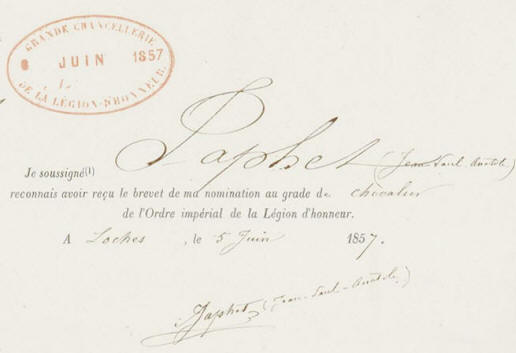 GRANDE CHANCELLERIE
8 JUIN 1857
DE LA LÉGION-D'HONNEUR.
Je soussigné(1) Japhet (Jean Paul Anatole)
reconnais avoir reçu le brevet de ma nomination au grade de chevalier
de l'Ordre impérial de la Légion d'honneur.
A Loches, le 5 Juin 1857.
Japhet (Jean-Paul-Anatole)